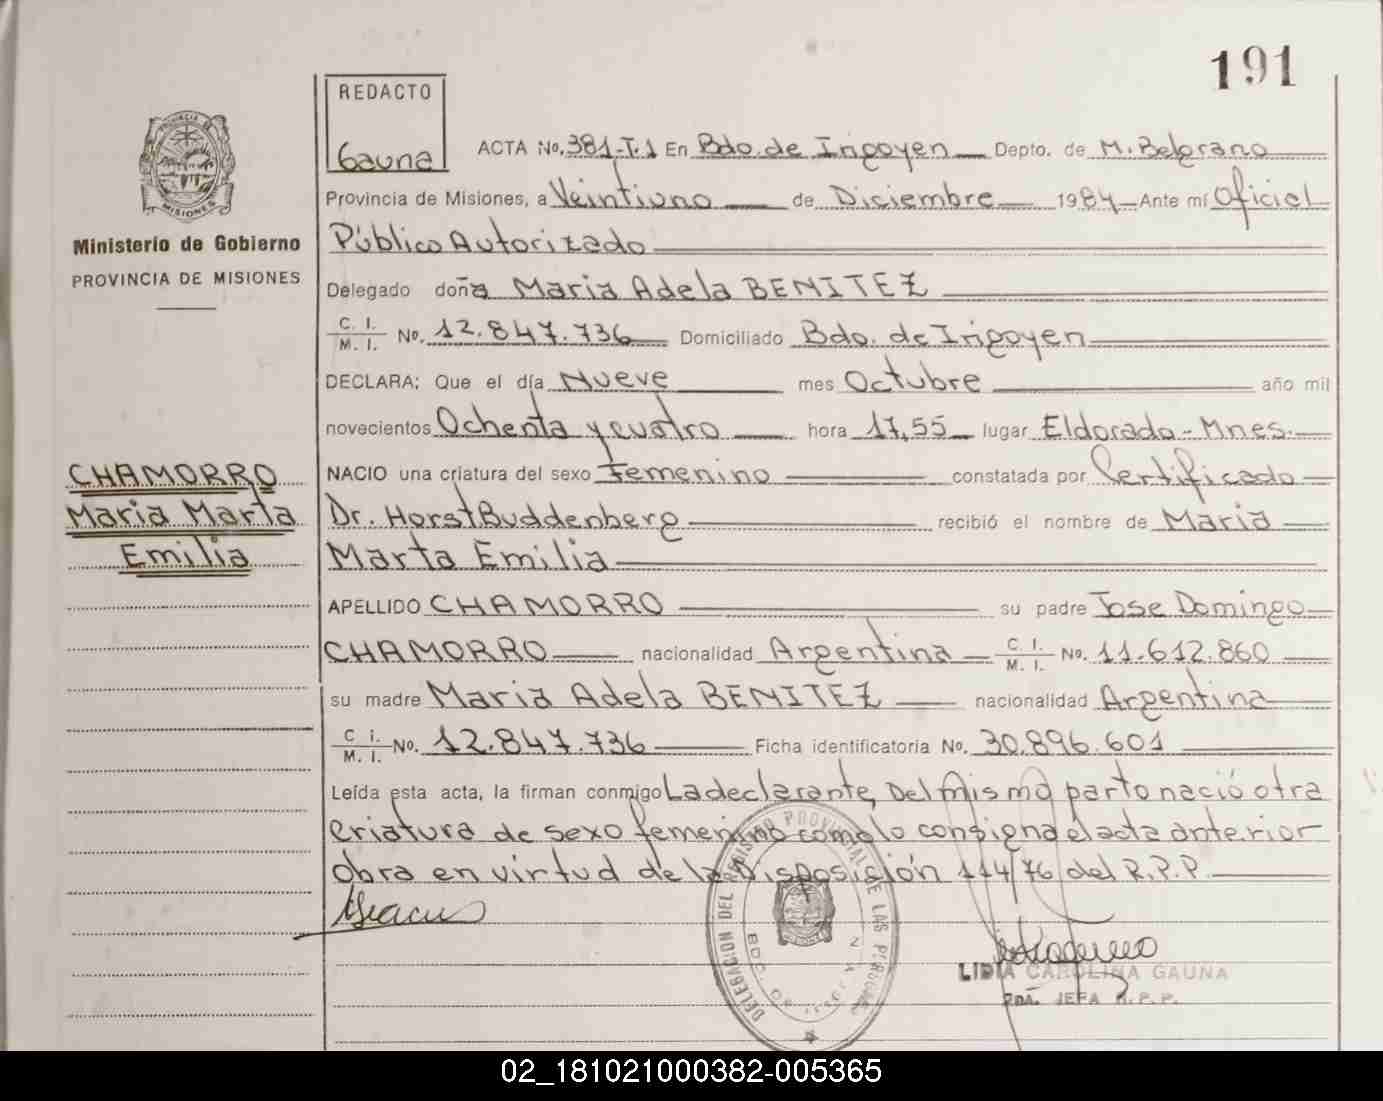 191
REDACTO
Gauna
PROVINCIA DE
MISIONES
ACTA No. 381-T.1 En Bdo. de Irigoyen Depto. de M. Belgrano
Provincia de Misiones, a Veintiuno de Diciembre 1984 Ante mí Oficial
Ministerio de Gobierno
PROVINCIA DE MISIONES
Público Autorizado
Delegado doña Maria Adela BENITEZ
C. I. M. I. No. 12.847.736 Domiciliado Bdo. de Irigoyen
DECLARA; Que el día Nueve mes Octubre año mil
novecientos Ochenta y cuatro hora 17,55 lugar Eldorado - Mnes.
CHAMORRO
Maria Marta
Emilia
NACIO una criatura del sexo Femenino constatada por Certificado
Dr. Horst Buddenberg recibió el nombre de Maria
Marta Emilia
APELLIDO CHAMORRO su padre Jose Domingo
CHAMORRO nacionalidad Argentina C. I. M. I. No. 11.612.860
su madre Maria Adela BENITEZ nacionalidad Argentina
C. I. M. I. No. 12.847.736 Ficha identificatoria No. 30.896.601
Leída esta acta, la firman conmigo La declarante, Del mismo parto nació otra
criatura de sexo femenino como lo consigna el acta anterior
Obra en virtud de la Disposición 114/76 del R.P.P.
DELEGACION DEL REGISTRO PROVINCIAL DE LAS PERSONAS
BDO. DE
LIDIA CAROLINA GAUNA
JEFA R. P. P.
02_181021000382-005365